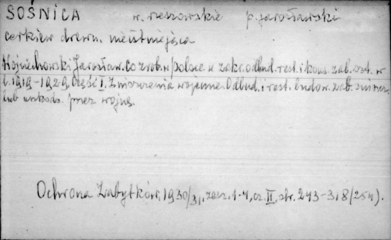 SOŚNICA w. rzeszowskie p. jarosławski
cerkiew drewn. nieistniejąca
Wojciechowski Jarosław. Co zrob. w Polsce w zakr. odbud. rest. i kons. zab. ost. w
l. 1919-1929. Część I. Zniszczenia wojenne. Odbud. i rest. budow. zab. zniszcz.
lub uszkodz. przez wojnę.
Ochrona Zabytków, 1930/31, zesz. 1-4, cz. II, str. 243-318 (254).